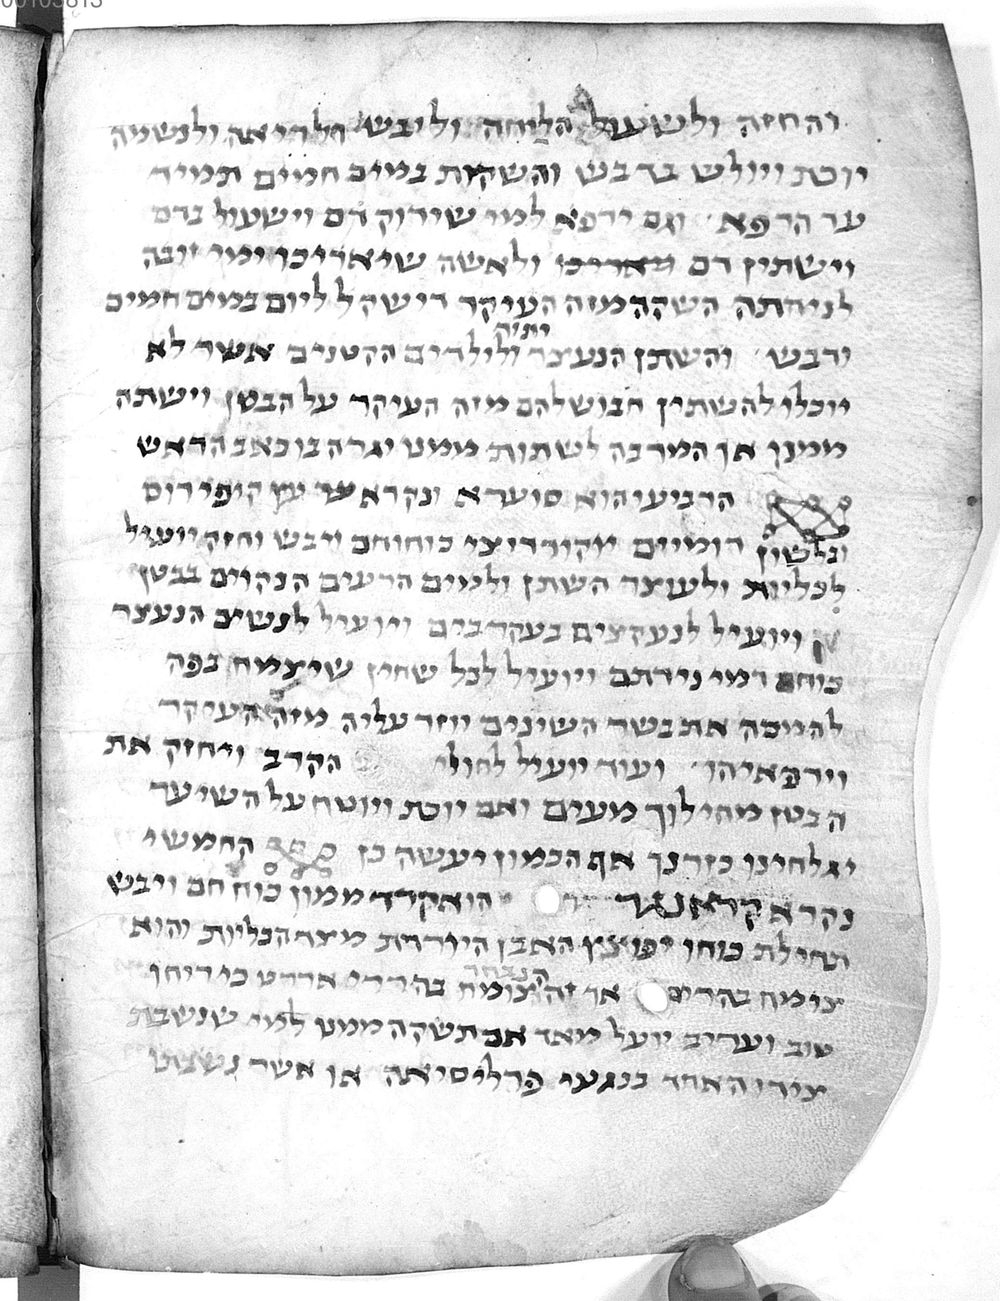 00105813
והחזה ולשעול הליחה וליבש חל הריאה ולנשמה
יוכת ויולש בדבש והשקות במים חמים תמיד
עד הרפא וגם ירפא למי שירוק דם וישעול בדם
וישתין דם ולאשה שיאריכו ימי זיבה
לנידתה השקה מזה העיקר דישקל ליום במים חמים
יתיק
ודבש והשתן הנעצר ולילדים הקטנים אשר לא
יוכלו להשתין חבוש להם מזה העיקר על הבטן וישתה
ממנו אך המרבה לשתות ממנו יגרה בו כאב הראש
הרביעי הוא סיערא ונקרא עץ קופירוס
ובלשון רומיים כוחו חם ויבש וחזק יועיל
לכליות ולעוצר השתן ולמים הרעים הנקוים בבטן
ויועיל לנעקצים בעקרבים ויועיל לנשים הנעצר
כוחם דמי נידתם ויועיל לכל שחין שיצמח בפה
להימסה את בשר השינים יוזר עליה מזה העיקר
וירפאיהו ועוד יועיל לחולי הקרב ויחזק את
הבטן מהילוך מעים ואם יוכת ויוטח על השיער
יגלחינו כזרנך אף הכמון יעשה כן החמשי
נקרא הוא קרדממון כוחו חם ויבש
תחילת כוחו יפוצץ האבן היורדת מצד הכליות והוא
הנבחר
צומח בהרים אך זה צומח בהררי אררט כי ריחו
טוב ועריב יועל מאד אם תשקה ממנו למי שנשבת
צידו האחד בנגעי פרליסיאה או אשר נשבתו